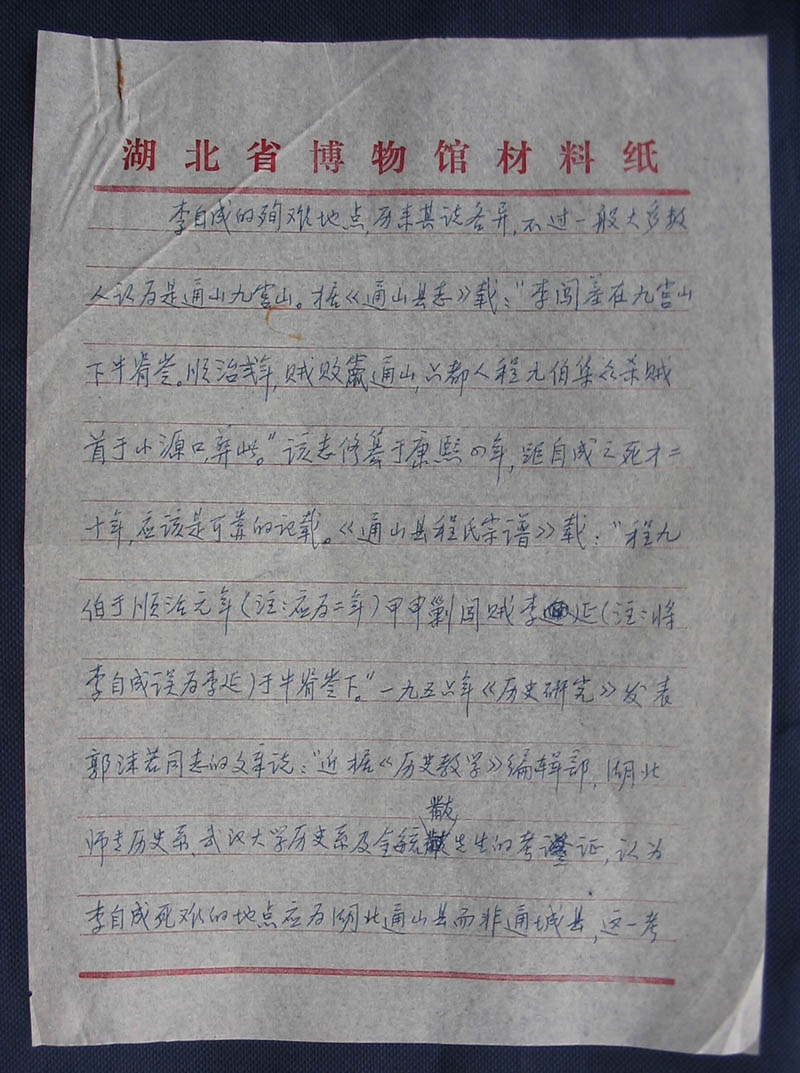 湖北省博物馆材料纸
李自成的殉难地点,历来其说各异,不过一般大多数
人认为是通山九宫山。据《通山县志》载:"李闯墓在九宫山
下牛脊岭。顺治弍年,贼败窜通山,六都人程九伯集众杀贼
首于小源口,葬此。"该志修纂于康熙四年,距自成之死才二
十年,应该是可靠的记载。《通山县程氏宗谱》载:"程九
伯于顺治元年(注:应为二年)甲申剿闯贼李延(注:将
李自成误为李延)于牛脊岭下。"一九五六年《历史研究》发表
郭沫若同志的文章说:"近据《历史教学》编辑部,湖北
师专历史系、武汉大学历史系及金毓黻先生的考证,认为
李自成死难的地点应为湖北通山县而非通城县,这一考